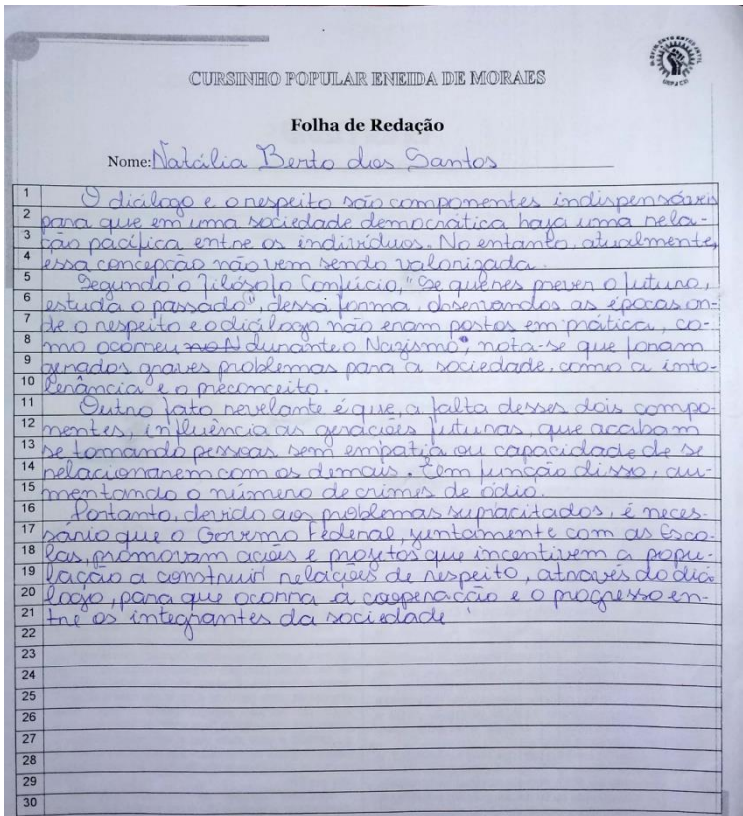 CURSINHO POPULAR ENEIDA DE MORAES
Folha de Redação
Nome: Natália Berto dos Santos
1 O diálogo e o respeito são componentes indispensáveis
2 para que em uma sociedade democrática haja uma rela-
3 ção pacífica entre os indivíduos. No entanto, atualmente,
4 essa concepção não vem sendo valorizada.
5 Segundo o filósofo Confúcio, "Se queres prever o futuro,
6 estuda o passado", dessa forma, observandos as épocas on-
7 de o respeito e o diálogo não eram postos em prática, co-
8 mo ocorreu durante o Nazismo, nota-se que foram
9 gerados graves problemas para a sociedade, como a into-
10 lerância e o preconceito.
11 Outro fato revelante é que, a falta desses dois compo-
12 nentes, influência as gerações futuras, que acabam
13 se tornando pessoas sem empatia ou capacidade de se
14 relacionarem com os demais. Em função disso, au-
15 mentando o número de crimes de ódio.
16 Portanto, devido aos problemas supracitados, é neces-
17 sário que o Governo Federal, juntamente com as Esco-
18 las, promovam ações e projetos que incentivem a popu-
19 lação a construir relações de respeito, através do diá
20 logo, para que ocorra a cooperação e o progresso en-
21 tre os integrantes da sociedade
22
23
24
25
26
27
28
29
30